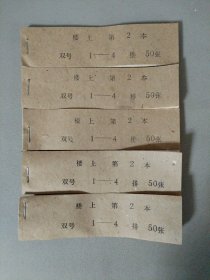 楼上第2本
双号 1—4 排 50张
楼上第2本
双号 1—4 排 50张
楼上第2本
双号 1—4 排 50张
楼上第2本
双号 1—4 排 50张
楼上第2本
双号 1—4 排 50张